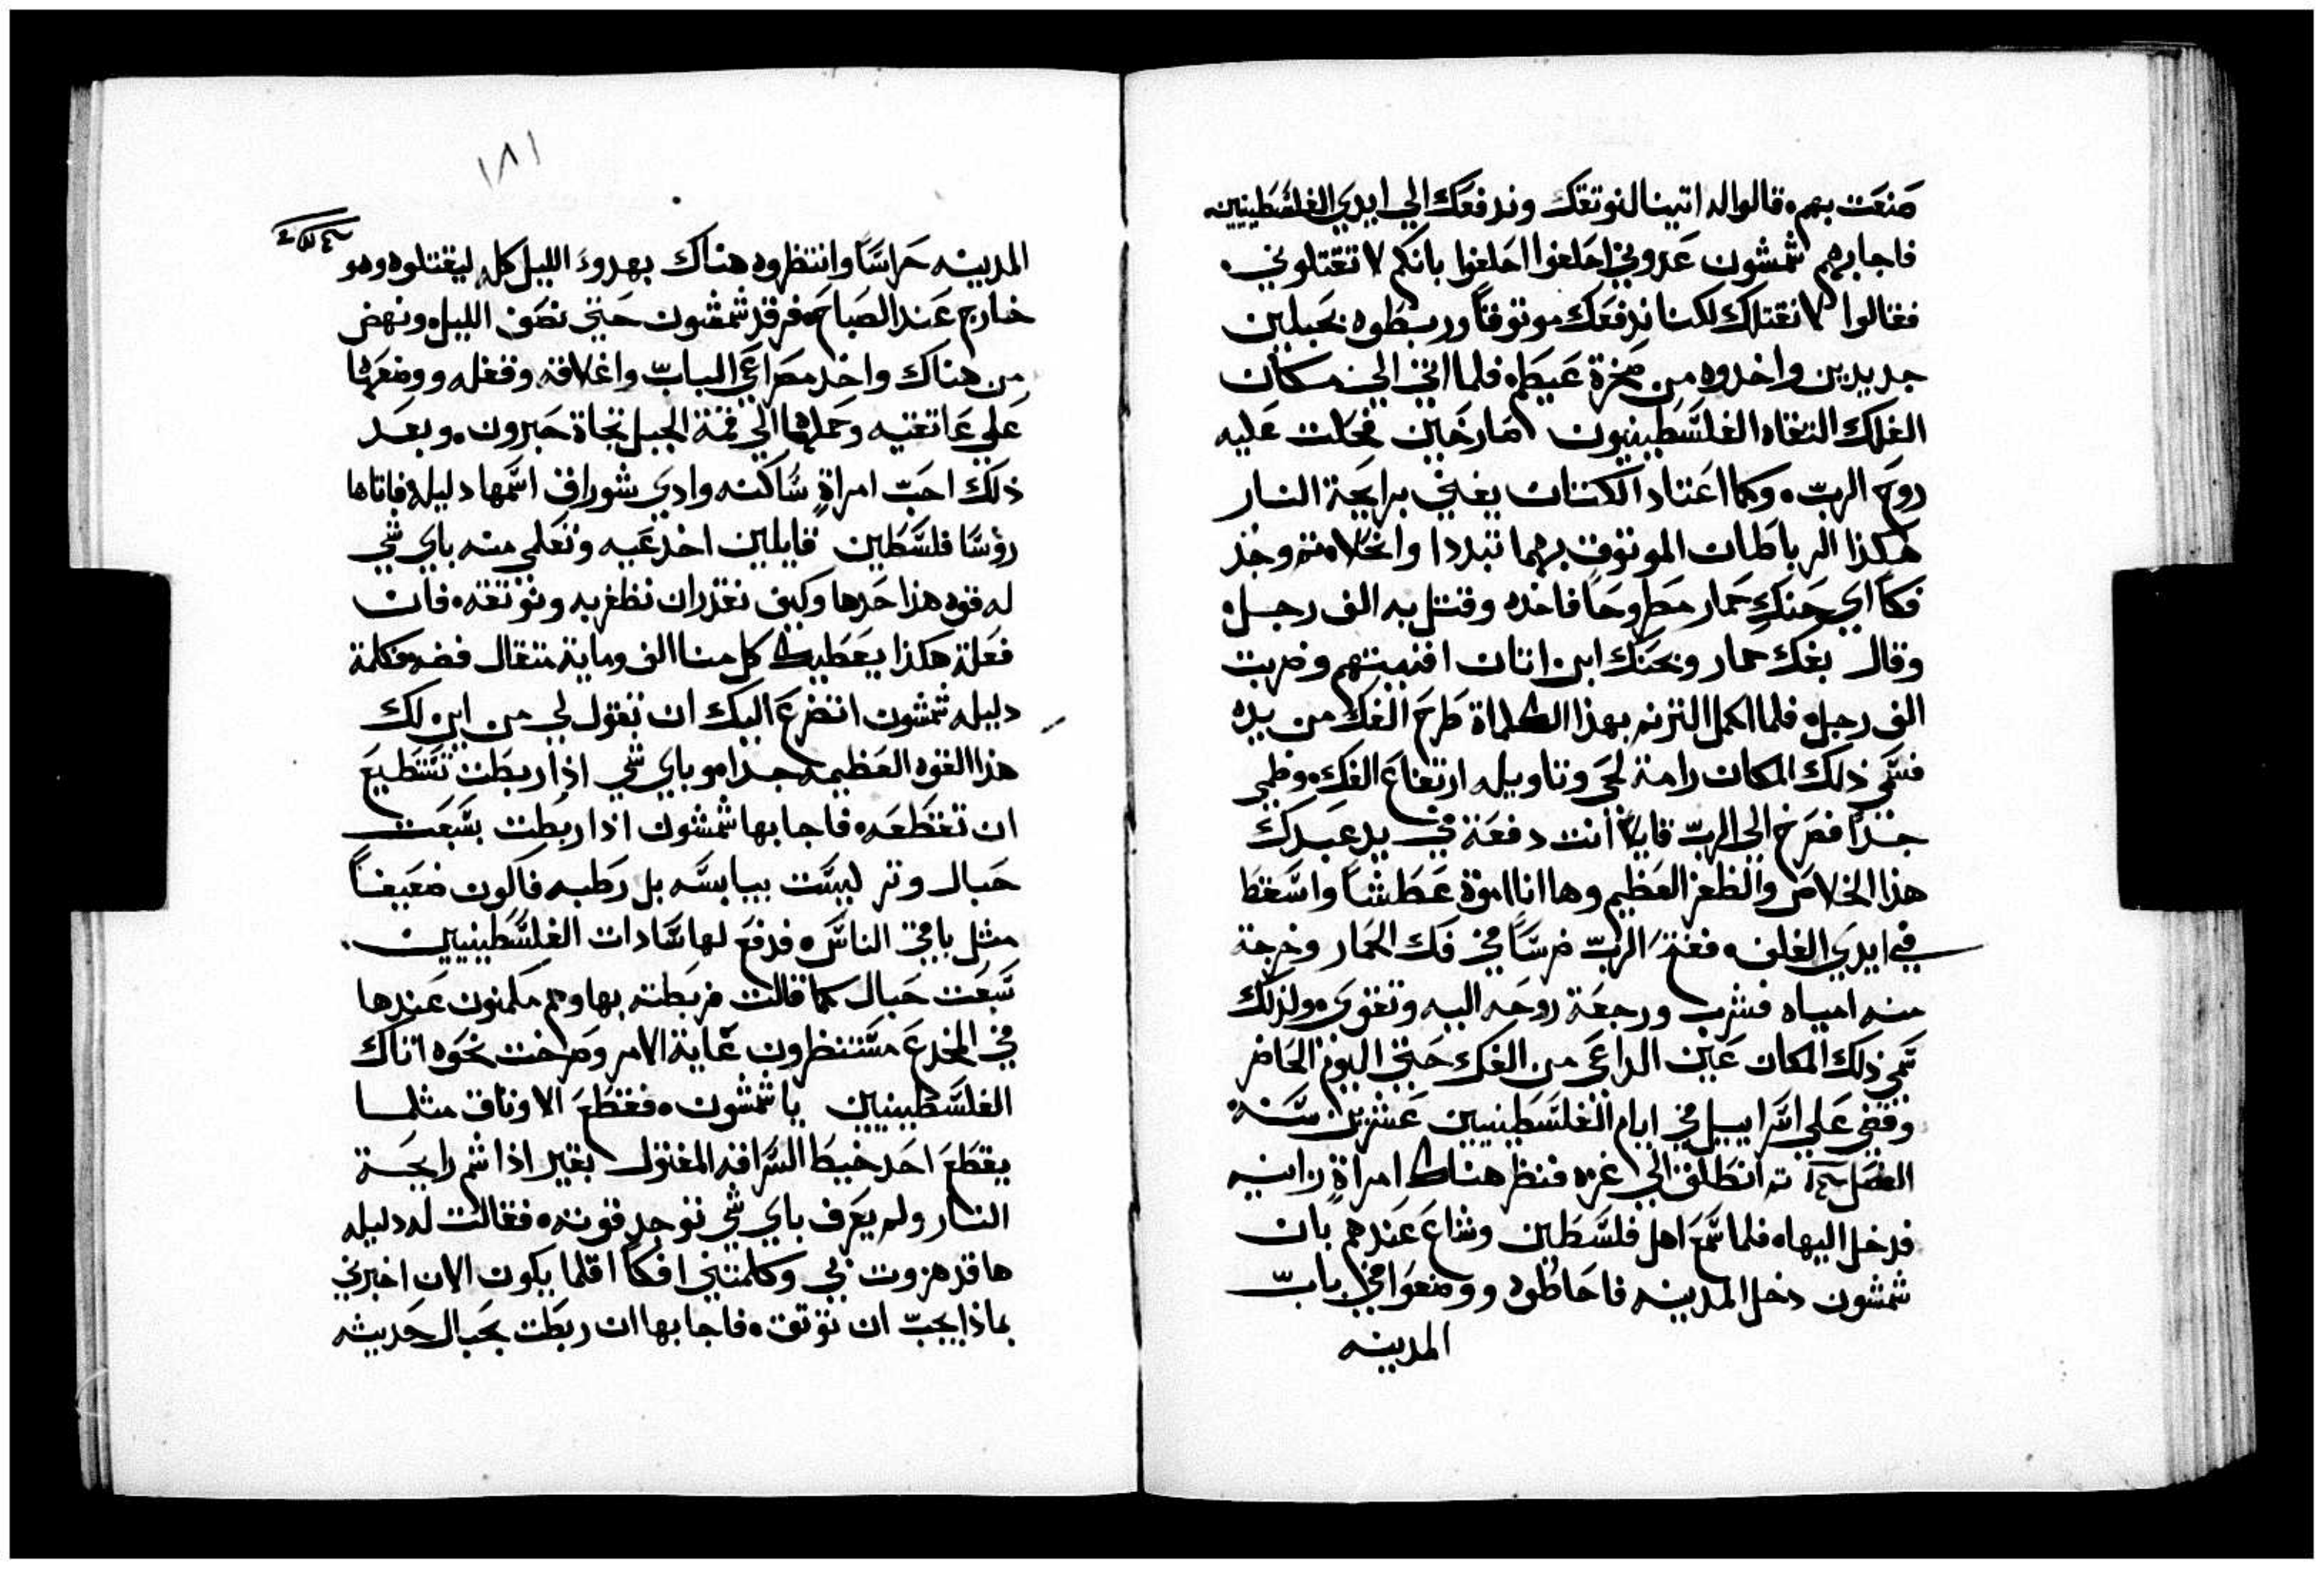 صنعت بهم ه قالوا له اتينا لنوتقك وندفعك الي ايدي الفلسطينيين
فاجابهم شمشون عدوني احلفوا احلفوا بانكم لا تقتلوني ه
فقالوا لا نقتلك لكننا ندفعك موتوقاً وربطوه بحبلين
جديدين واخدوه من صخرة عيطم فلما اتي الي مكان
الفلك التقاه الفلسطينيون صارخين فحلت عليه
روح الرب ه وكما اعتاد الكتان يفني برايحة النار
هكذا الرباطات الموتوق بهما تبددا وانحلا منه وجد
فكا اي حنك حمار مطروحاً فاخده وقتل به الف رجل ه
وقال بفك حمار وبحنك ابن اتان افنيتهم وضربت
الف رجل ه فلما اكمل الترنه بهذا الكلماة طرح الفك من يده
فسمي ذلك المكان رامة لحي وتاويله ارتفاع الفك ه وظمي
جداً فصرخ الي الرب قايلاً أنت دفعة في يد عبدك
هذا الخلاص والظفر العظيم وها انا اموة عطشاً واسقط
في ايدي الغلف ه ففتح الرب ضرساً في فك الحمار وخرجة
منه امياه فشرب ورجعة روحه اليه وتقوي ه ولذلك
سمي ذلك المكان عين الداعي من الفك حتي اليوم الحاضر
وقضي علي اسراييل في ايام الفلسطينيين عشرين سنه ه
الفصل تم انطلق الي غزه فنظر هناك امراة زانيه
فدخل اليها ه فلما سمع اهل فلسطين وشاع عندهم بان
شمشون دخل المدينه فاحاطوه ووضعوا في باب
المدينه
١٨١
المدينه حراساً وانتظروه هناك بهدوء الليل كله ليقتلوه وهو
خارج عند الصباح ه فرقد شمشون حتي نصف الليل ه ونهض
من هناك واخد مصراعي الباب واغلاقه وقفله ووضعهما
علي عاتقيه وحملهما الي قمة الجبل تجاة حبرون ه وبعد
ذلك احب امراة ساكنه وادي شوراق اسمها دليله فاتاها
روسا فلسطين قايلين اخدعيه وتعلمي منه باي شي
له قوه هذا حدها وكيف نقدر ان نظفر به ونوتقه ه فان
فعلة هكذا يعطيك كل منا الف وماية متقال فضه ه فكلمة
دليله شمشون اتضرع اليك ان تقول لي من اين لك
هذا القوه العظيمه جدا هو باي شي اذا ربطت تستطيع
ان تقطعه ه فاجابها شمشون اذا ربطت بسبعت
حبال وتر ليست بيابسه بل رطبه فاكون ضعيفاً
مثل باقي الناس ه فدفع لها سادات الفلسطينيين ه
سبعت حبال كما قالت فربطته بها وهم مكمنون عندها
في المخدع مستنظرون غاية الامر وصرخت نحوه اتاك
الفلسطينيين يا شمشون ه فقطع الاوتاق مثلما
يقطع احد خيط السراقه المفتول بقير اذا شم رايحة
النار ولم يعرف باي شي توجد قوته ه فقالت له دليله
ها قد هزوت بي وكلمتني افكاً اقلما يكون الان اخبرني
بماذا يجب ان توتق ه فاجابها ان ربطت بحبال حديثه